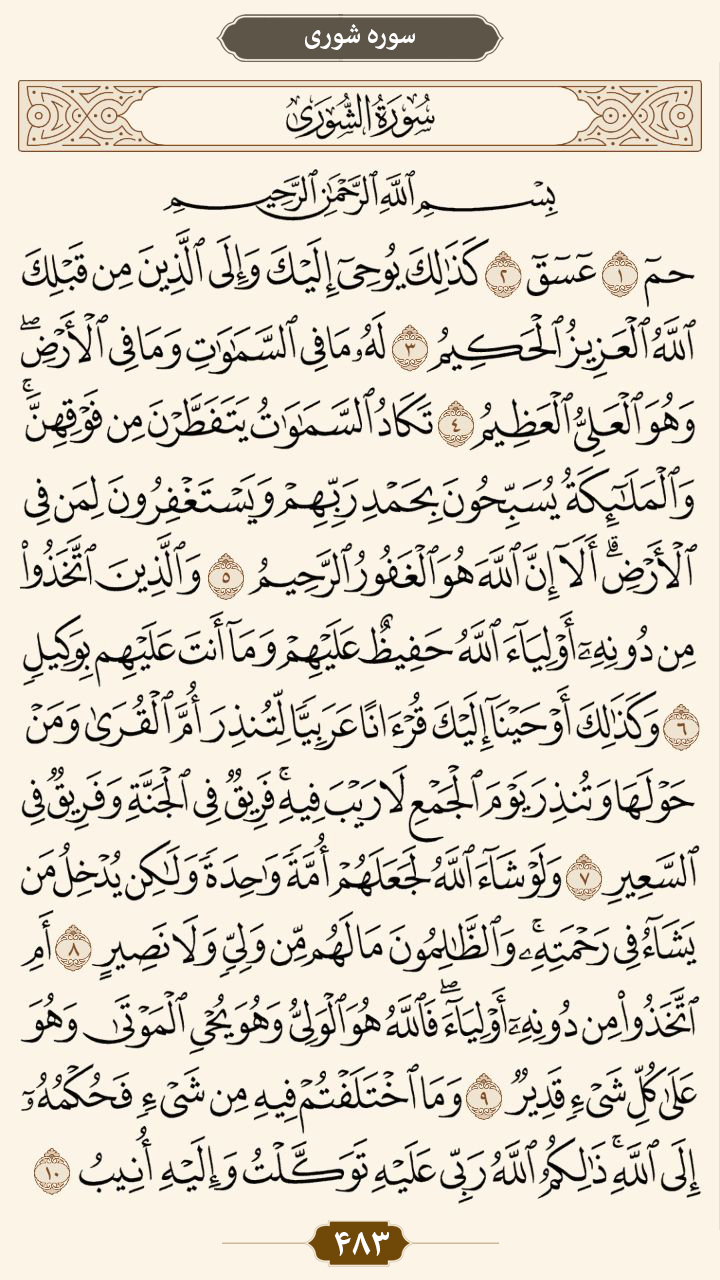 سوره شوری
سُورَةُ الشُّورَىٰ
بِسْمِ ٱللَّهِ ٱلرَّحْمَٰنِ ٱلرَّحِيمِ
حمٓ ١ عٓسٓقٓ ٢ كَذَٰلِكَ يُوحِىٓ إِلَيْكَ وَإِلَى ٱلَّذِينَ مِن قَبْلِكَ
ٱللَّهُ ٱلْعَزِيزُ ٱلْحَكِيمُ ٣ لَهُۥ مَا فِى ٱلسَّمَٰوَٰتِ وَمَا فِى ٱلْأَرْضِۖ
وَهُوَ ٱلْعَلِىُّ ٱلْعَظِيمُ ٤ تَكَادُ ٱلسَّمَٰوَٰتُ يَتَفَطَّرْنَ مِن فَوْقِهِنَّۚ
وَٱلْمَلَٰٓئِكَةُ يُسَبِّحُونَ بِحَمْدِ رَبِّهِمْ وَيَسْتَغْفِرُونَ لِمَن فِى
ٱلْأَرْضِۗ أَلَآ إِنَّ ٱللَّهَ هُوَ ٱلْغَفُورُ ٱلرَّحِيمُ ٥ وَٱلَّذِينَ ٱتَّخَذُوا۟
مِن دُونِهِۦٓ أَوْلِيَآءَ ٱللَّهُ حَفِيظٌ عَلَيْهِمْ وَمَآ أَنتَ عَلَيْهِم بِوَكِيلٍ
٦ وَكَذَٰلِكَ أَوْحَيْنَآ إِلَيْكَ قُرْءَانًا عَرَبِيًّا لِّتُنذِرَ أُمَّ ٱلْقُرَىٰ وَمَنْ
حَوْلَهَا وَتُنذِرَ يَوْمَ ٱلْجَمْعِ لَا رَيْبَ فِيهِۚ فَرِيقٌ فِى ٱلْجَنَّةِ وَفَرِيقٌ فِى
ٱلسَّعِيرِ ٧ وَلَوْ شَآءَ ٱللَّهُ لَجَعَلَهُمْ أُمَّةً وَٰحِدَةً وَلَٰكِن يُدْخِلُ مَن
يَشَآءُ فِى رَحْمَتِهِۦۚ وَٱلظَّٰلِمُونَ مَا لَهُم مِّن وَلِىٍّ وَلَا نَصِيرٍ ٨ أَمِ
ٱتَّخَذُوا۟ مِن دُونِهِۦٓ أَوْلِيَآءَۖ فَٱللَّهُ هُوَ ٱلْوَلِىُّ وَهُوَ يُحْىِ ٱلْمَوْتَىٰ وَهُوَ
عَلَىٰ كُلِّ شَىْءٍ قَدِيرٌ ٩ وَمَا ٱخْتَلَفْتُمْ فِيهِ مِن شَىْءٍ فَحُكْمُهُۥٓ
إِلَى ٱللَّهِۚ ذَٰلِكُمُ ٱللَّهُ رَبِّى عَلَيْهِ تَوَكَّلْتُ وَإِلَيْهِ أُنِيبُ ١٠
۴۸۳